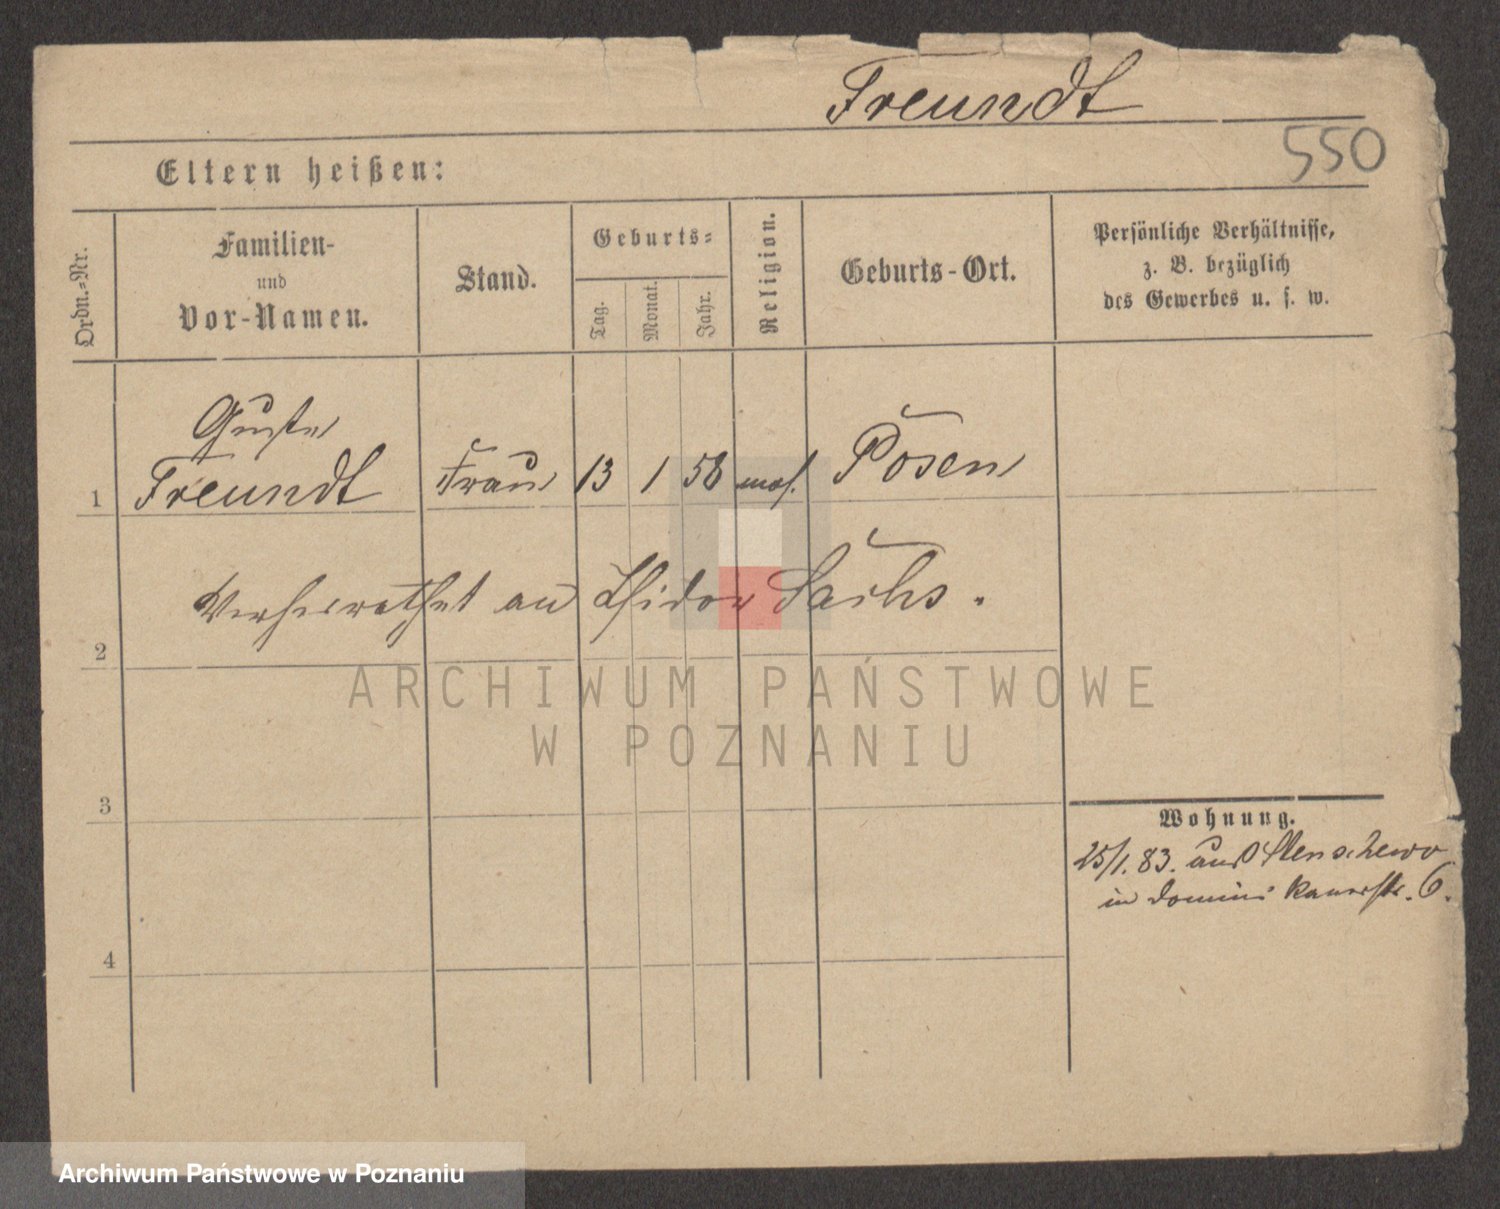 Freundt
550
Eltern heißen:
Ordn.-Nr.
Familien-
und
Vor-Namen.
Stand.
Geburts-
Tag.
Monat.
Jahr.
Religion.
Geburts-Ort.
Persönliche Verhältnisse,
z. B. bezüglich
des Gewerbes u. s. w.
Guste
1 Freundt Frau 13 1 58 mos. Posen
Verheirathet an Isidor Sachs.
2
ARCHIWUM PAŃSTWOWE
W POZNANIU
3
Wohnung.
25/1.83. aus Stenschewo
in Dominikanerstr. 6.
4
Archiwum Państwowe w Poznaniu